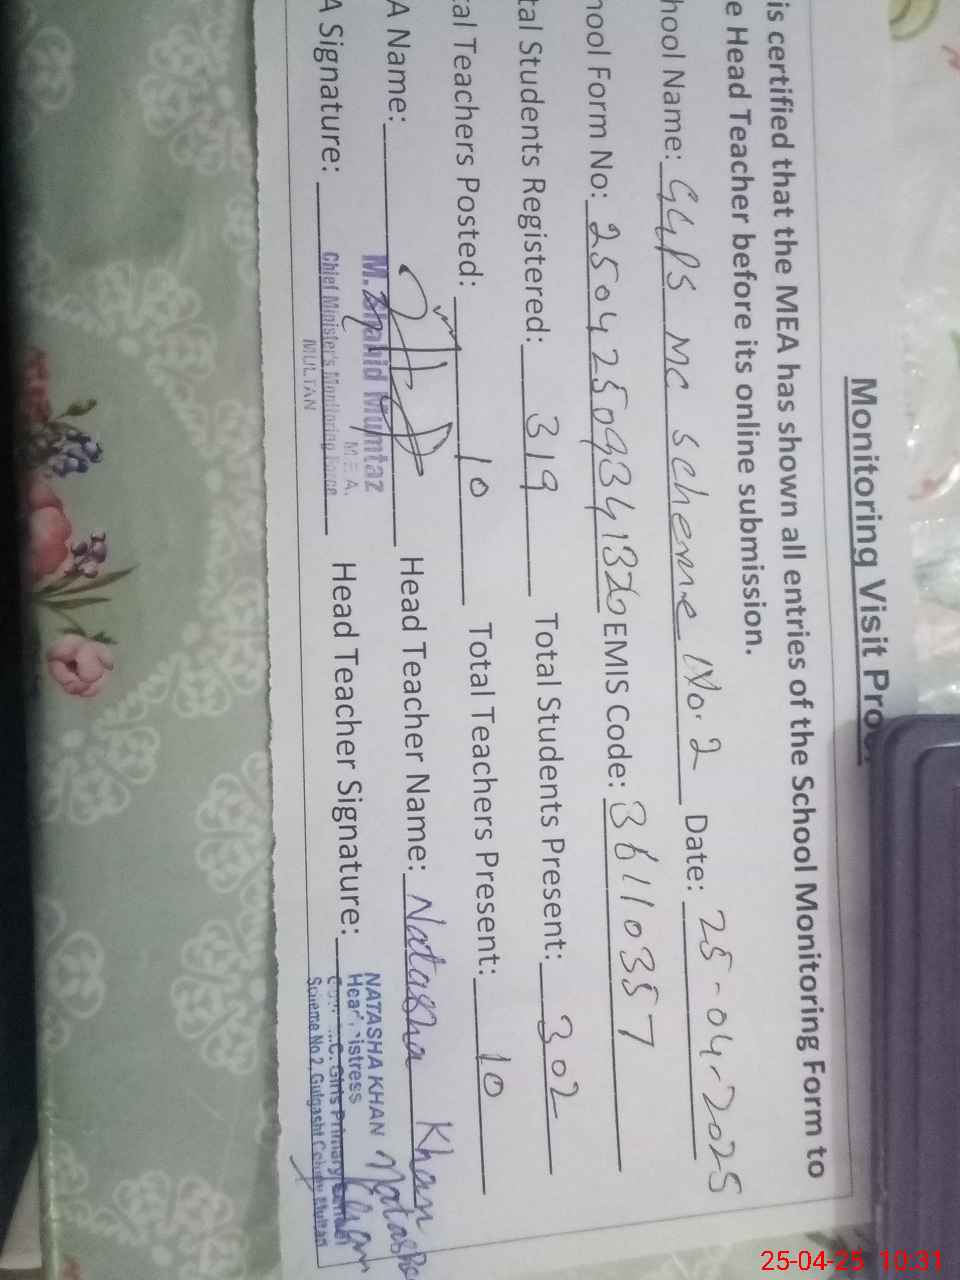 Monitoring Visit Pro
is certified that the MEA has shown all entries of the School Monitoring Form to
e Head Teacher before its online submission.
hool Name: GGPS MC Scheme No. 2 Date: 25-04-2025
hool Form No: EMIS Code: 36110357
tal Students Registered: 319 Total Students Present: 302
tal Teachers Posted: 10 Total Teachers Present: 10
A Name: Head Teacher Name: Natasha Khan
A Signature: Head Teacher Signature: Natasha Khan
M. Shahid Mumtaz
M.E.A.
Chief Minister's Monitoring Force
MULTAN
NATASHA KHAN
Head Mistress
M.C. Girls Primary School
Scheme No.2, Gulgasht Colony Multan
25-04-25 10:31